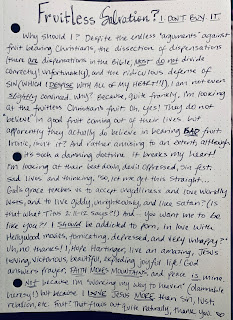 Fruitless Salvation? I DON'T BUY IT.
Why should I? Despite the endless "arguments" against
fruit bearing Christians, the dissection of dispensations
(there are dispensations in the Bible, most do not divide
correctly unfortunately), and the ridiculous defense of
SIN (WHICH I DESPISE WITH ALL OF MY HEART!!!), I am not even
slightly convinced. Why? Because, quite frankly, I'm looking
at the fruitless Christians fruit. Oh, yes! They do not
"believe" in good fruit coming out of their lives but
apparently they actually do believe in bearing BAD fruit.
Ironic, isn't it? And rather amusing to an extent, although
it's such a damning doctrine it breaks my heart!
I'm looking at their beat down, devil oppressed, sin filled
sad lives and thinking, "So, let me get this straight...
God's grace teaches us to accept ungodliness and love worldly
lusts, and to live ungodly, unrighteously, and like satan? (Is
that what Titus 2:11-12 says?!) And... you want me to be
like you?! I should be addicted to porn, in love with
Hollywood movies, fornicating, depressed, and very unhappy?"
Uh, no thanks! I, Hope Hartinger, live an amazing, Jesus
loving, victorious, beautiful, exploding joyful life! God
answers prayer, FAITH MOVES MOUNTAINS, and peace IS mine.
NOT because I'm "working my way to heaven" (damnable
heresy!) but because I LOVE JESUS MORE than sin, lust,
rebellion, etc. Fruit that flows out quite naturally, thank you. So